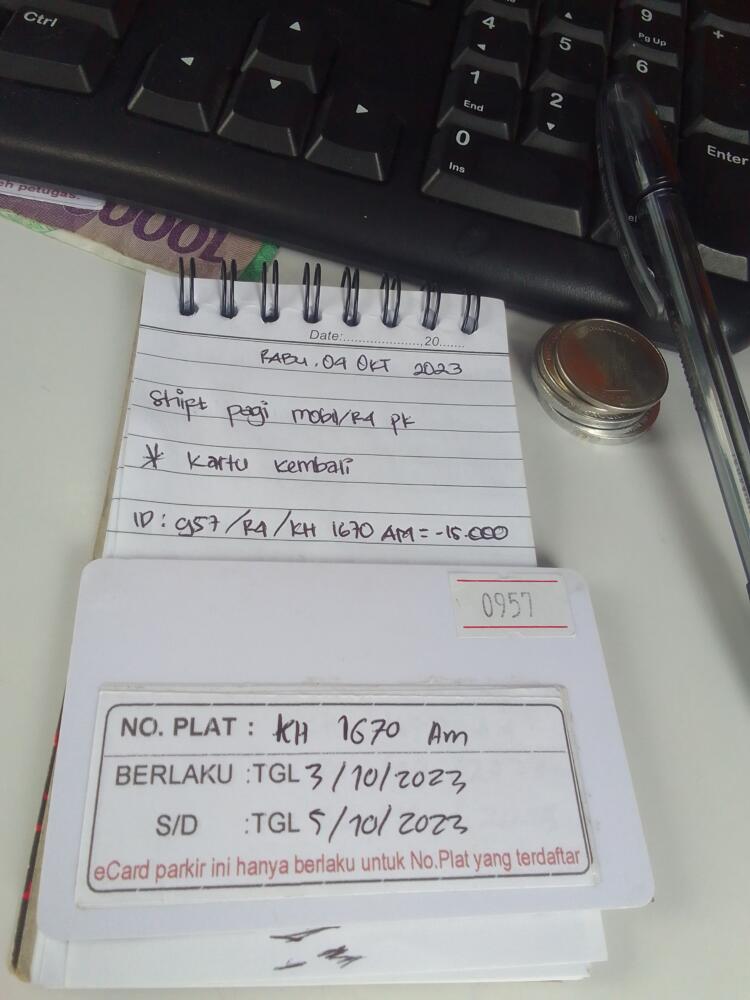 Ctrl
4
5
9
Pg Up
6
+
1
End
2
0
Ins
Enter
eh petugas.
Date:......................,20.......
RABU. 04 OKT 2023
Shift pagi mobil/R4 pk
* Kartu kembali
ID: 957/R4/KH 1670 AM = -15.000
0957
NO. PLAT : KH 1670 Am
BERLAKU :TGL 3/10/2023
S/D :TGL 5/10/2023
eCard parkir ini hanya berlaku untuk No.Plat yang terdaftar